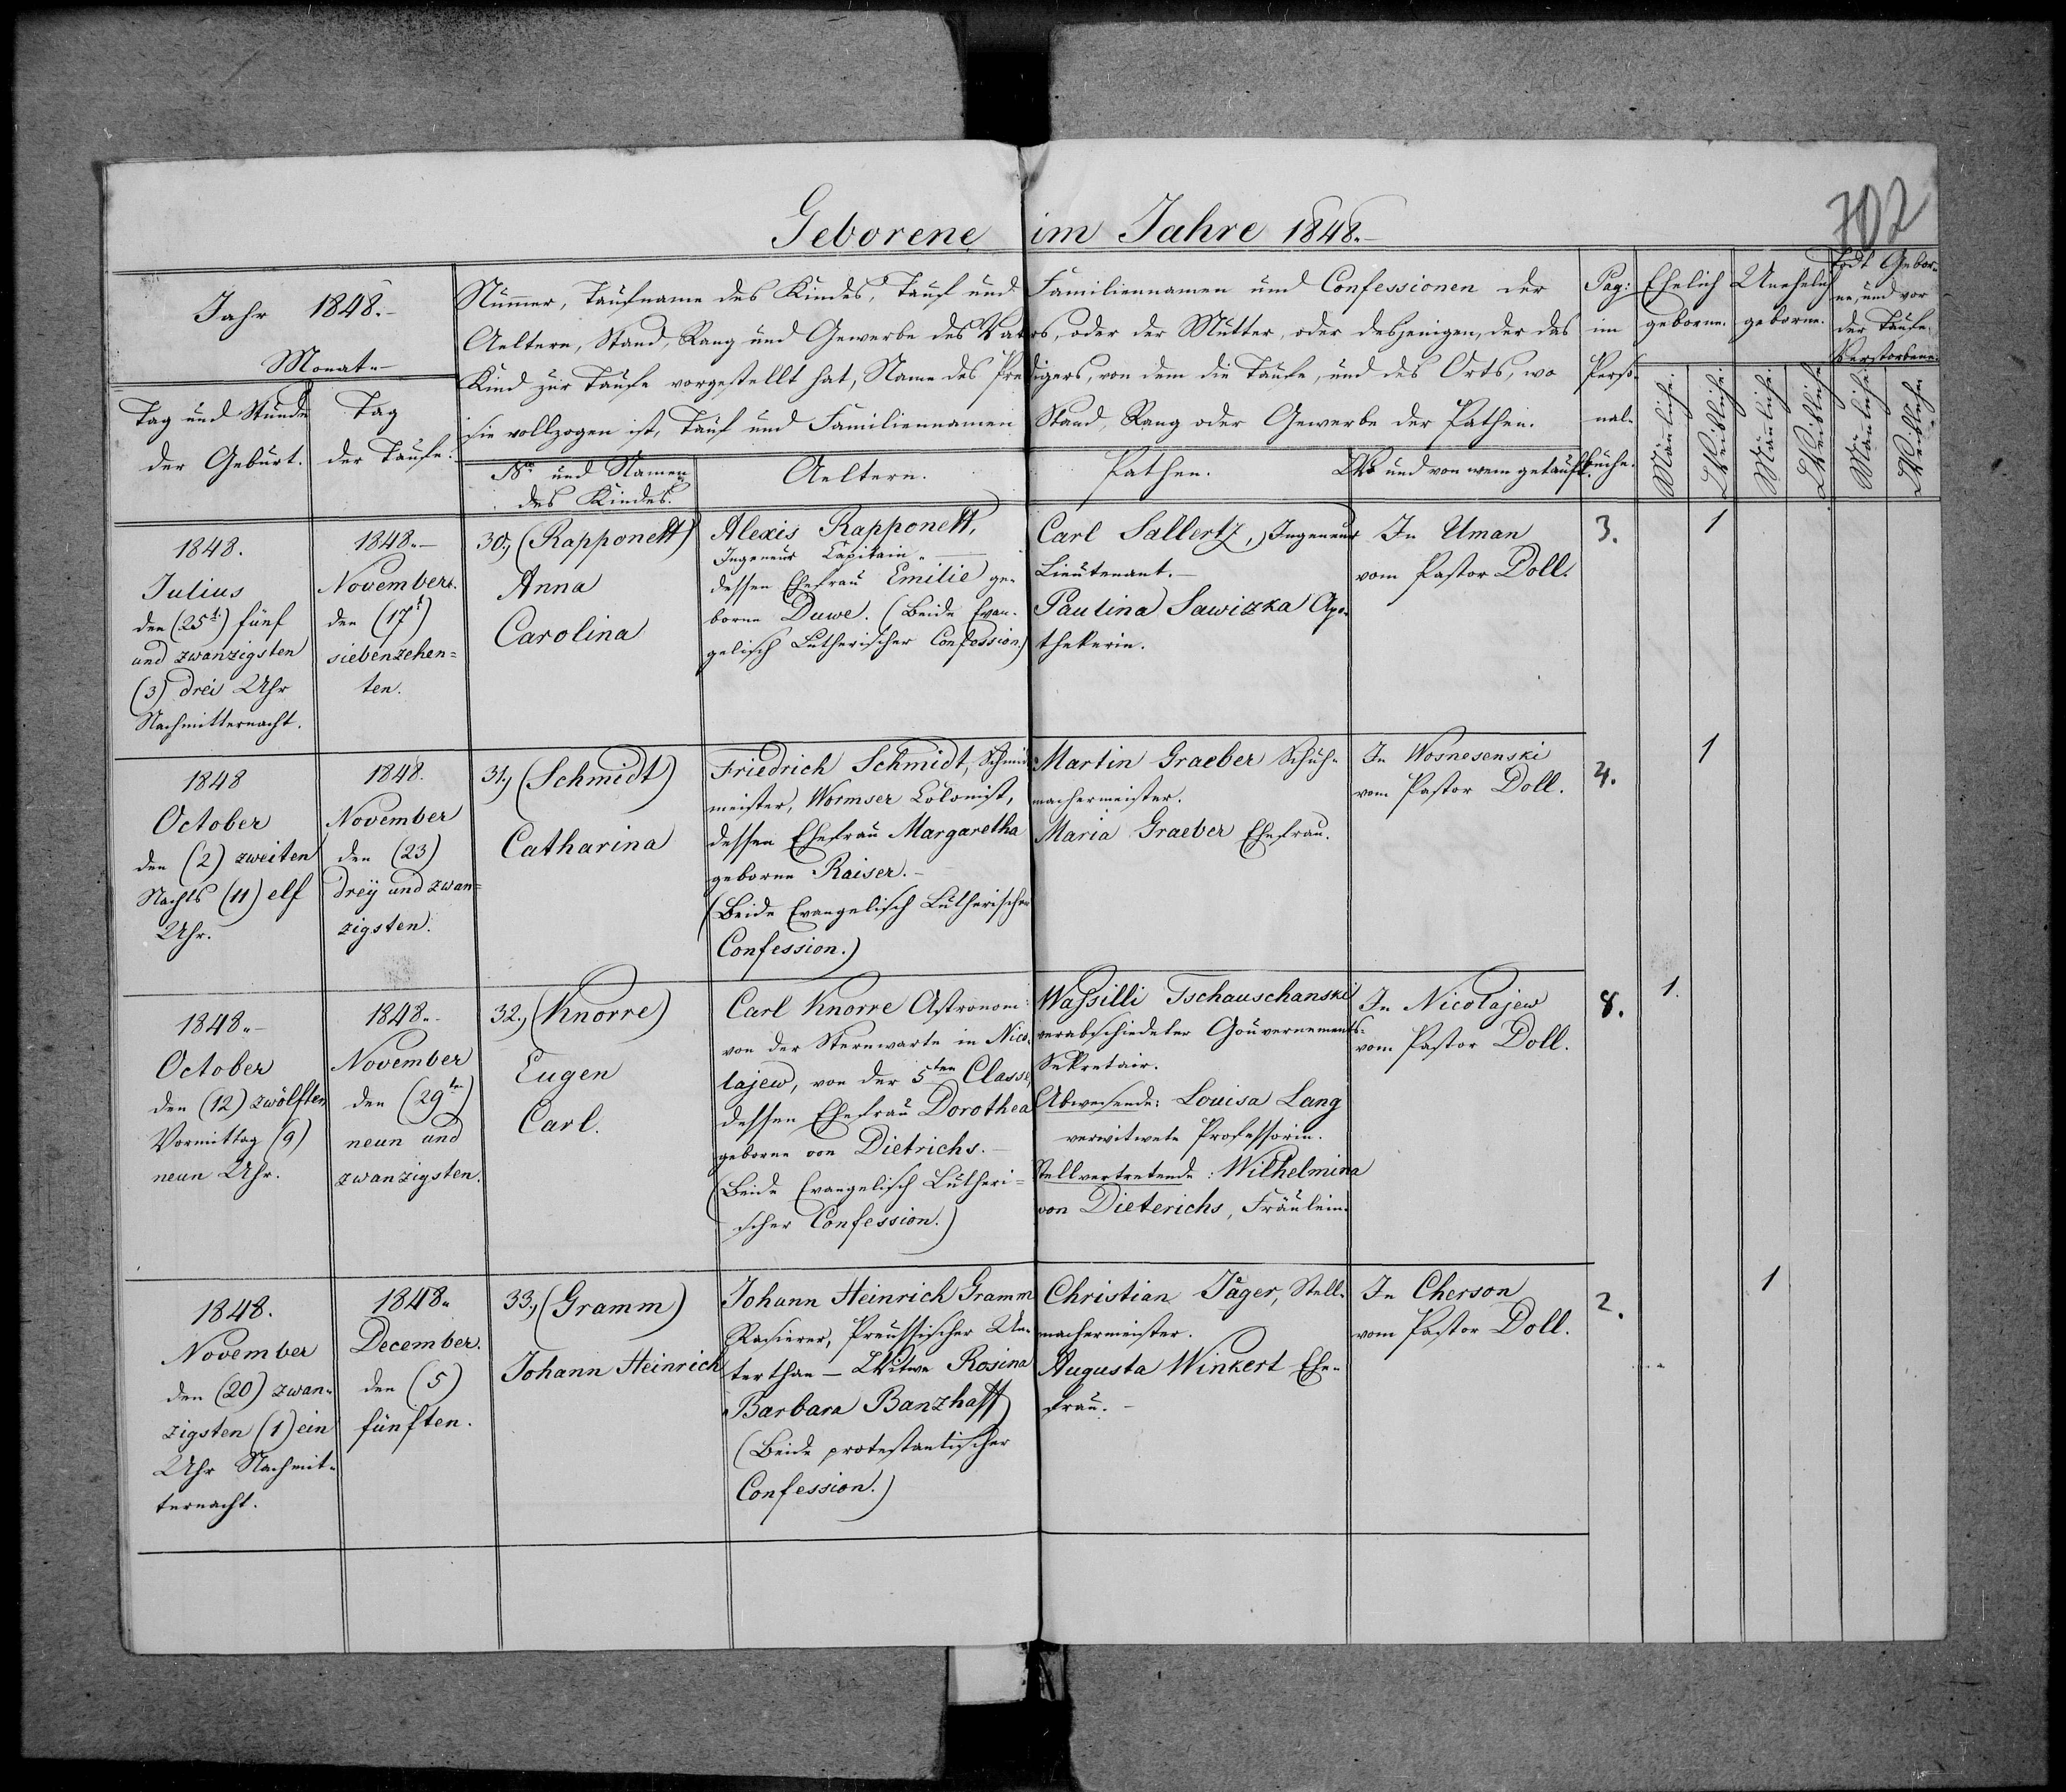 702
Geborene im Jahre 1848.
Jahr 1848.
Monat
Tag und Stunde
der Geburt.
Tag
der Taufe.
Nummer, Taufname des Kindes, Tauf und Familiennamen und Confessionen der
Aeltern, Stand, Rang und Gewerbe des Vaters, oder der Mutter, oder desjenigen, der das
Kind zur Taufe vorgestellt hat, Name des Predigers, von dem die Taufe, und des Orts, wo
sie vollzogen ist, Tauf und Familiennamen Stand, Rang oder Gewerbe der Pathen.
No und Namen
des Kindes.
Aeltern.
Pathen.
Wo und von wem getauft.
Pag:
im
Perso-
nal-
buche.
Ehelich
geborne.
Unehelich
geborne.
Todt Gebor-
ne, und vor
der Taufe
Verstorbene.
Mänliche.
Weibliche.
Mänliche.
Weibliche.
Mänliche.
Weibliche.
1848.
Julius
den (25t) fünf
und zwanzigsten
(3) drei Uhr
Nachmitternacht.
1848.
November.
den (17t)
siebenzehen=
ten.
30., (Rapponett)
Anna
Carolina
Alexis Rapponett,
Ingeneur Capitain
dessen Ehefrau Emilie ge-
borne Duwe. (Beide Evan-
gelisch Lutherischer Confession.)
Carl Sallertz, Ingeneur
Lieutenant.
Paulina Sawizka Apo-
thekerin.
In Uman
vom Pastor Doll.
3.
1
1848
October
den (2) zweiten
Nachts (11) elf
Uhr.
1848.
November
den (23)
drey und zwan=
zigsten.
31., (Schmidt)
Catharina
Friedrich Schmidt, Schmid
meister, Wormser Colonist,
dessen Ehefrau Margaretha
geborne Raiser.
(Beide Evangelisch Lutherischer
Confession.)
Martin Graeber Schuh-
machermeister.
Maria Graeber Ehefrau.
In Wosnesenski
vom Pastor Doll.
4.
1
1848.
October
den (12) zwölften
Vormittag (9)
neun Uhr.
1848.
November
den (29ten)
neun und
zwanzigsten.
32., (Knorre)
Eugen
Carl.
Carl Knorre Astronom
von der Sternwarte in Nico-
lajew, von der 5ten Classe,
dessen Ehefrau Dorothea
geborne von Dietrichs.
(Beide Evangelisch Lutheri=
scher Confession.)
Wassilli Tschauschanski
verabschiedeter Gouvernements-
Sekretair.
Abwesende: Louisa Lang
verwitwete Professorin.
Stellvertretende: Wilhelmina
von Dieterichs, Fräulein.
In Nicolajew
vom Pastor Doll.
8.
1.
1848.
November
den (20) zwan-
zigsten (1) ein
Uhr Nachmit-
ternacht.
1848.
December.
den (5)
fünften.
33., (Gramm)
Johann Heinrich
Johann Heinrich Gramm
Rasierer, Preussischer Un-
terthan - Witwe Rosina
Barbara Banzhaff
(Beide protestantischer
Confession.)
Christian Jäger, Stell-
machermeister.
Augusta Winkert Ehe-
frau.
In Cherson
vom Pastor Doll.
2.
1